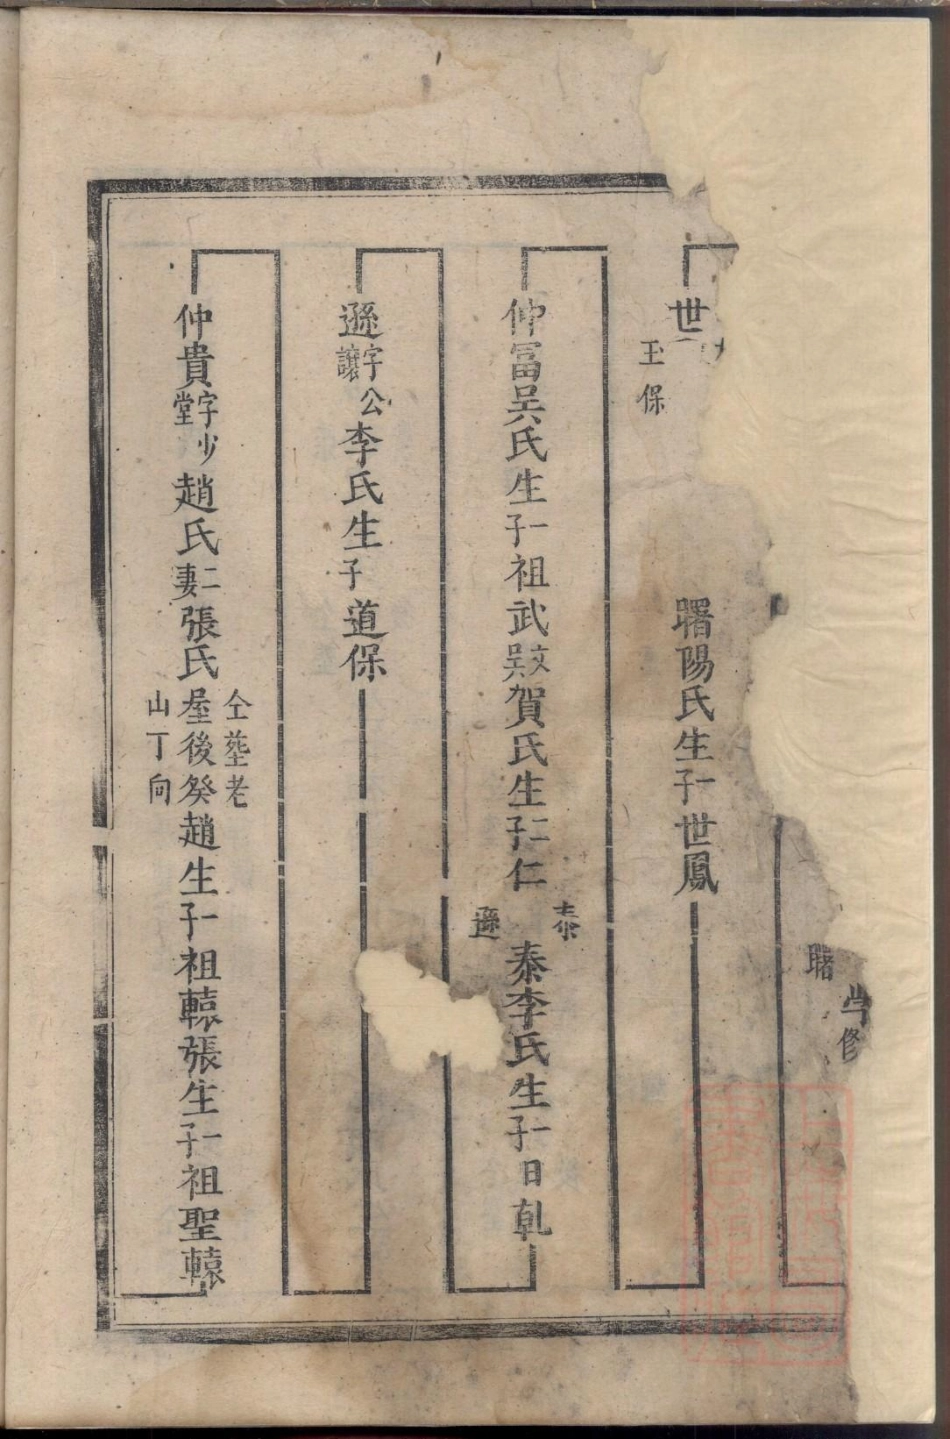 曙
修
世
玉保
曙陽氏生子一世鳳
仲冨吳氏生子一祖武歿文吳賀氏生子二仁
泰
遜
泰李氏生子一日乹
遜字公讓李氏生子道保
仲貴字少堂趙氏二妻張氏仝塟老屋後癸山丁向趙生子一祖轅張生子一祖聖轅